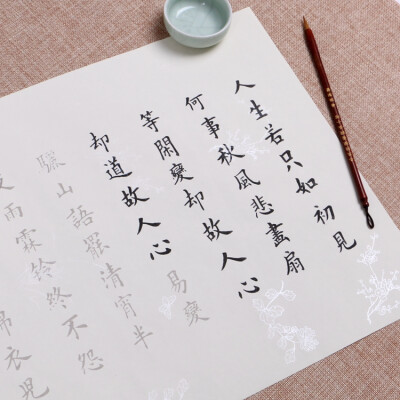 人生若只如初見
何事秋風悲畫扇
等閑變却故人心
却道故人心易變
驪山語罷清宵半
雨霖鈴終不怨
衣兒